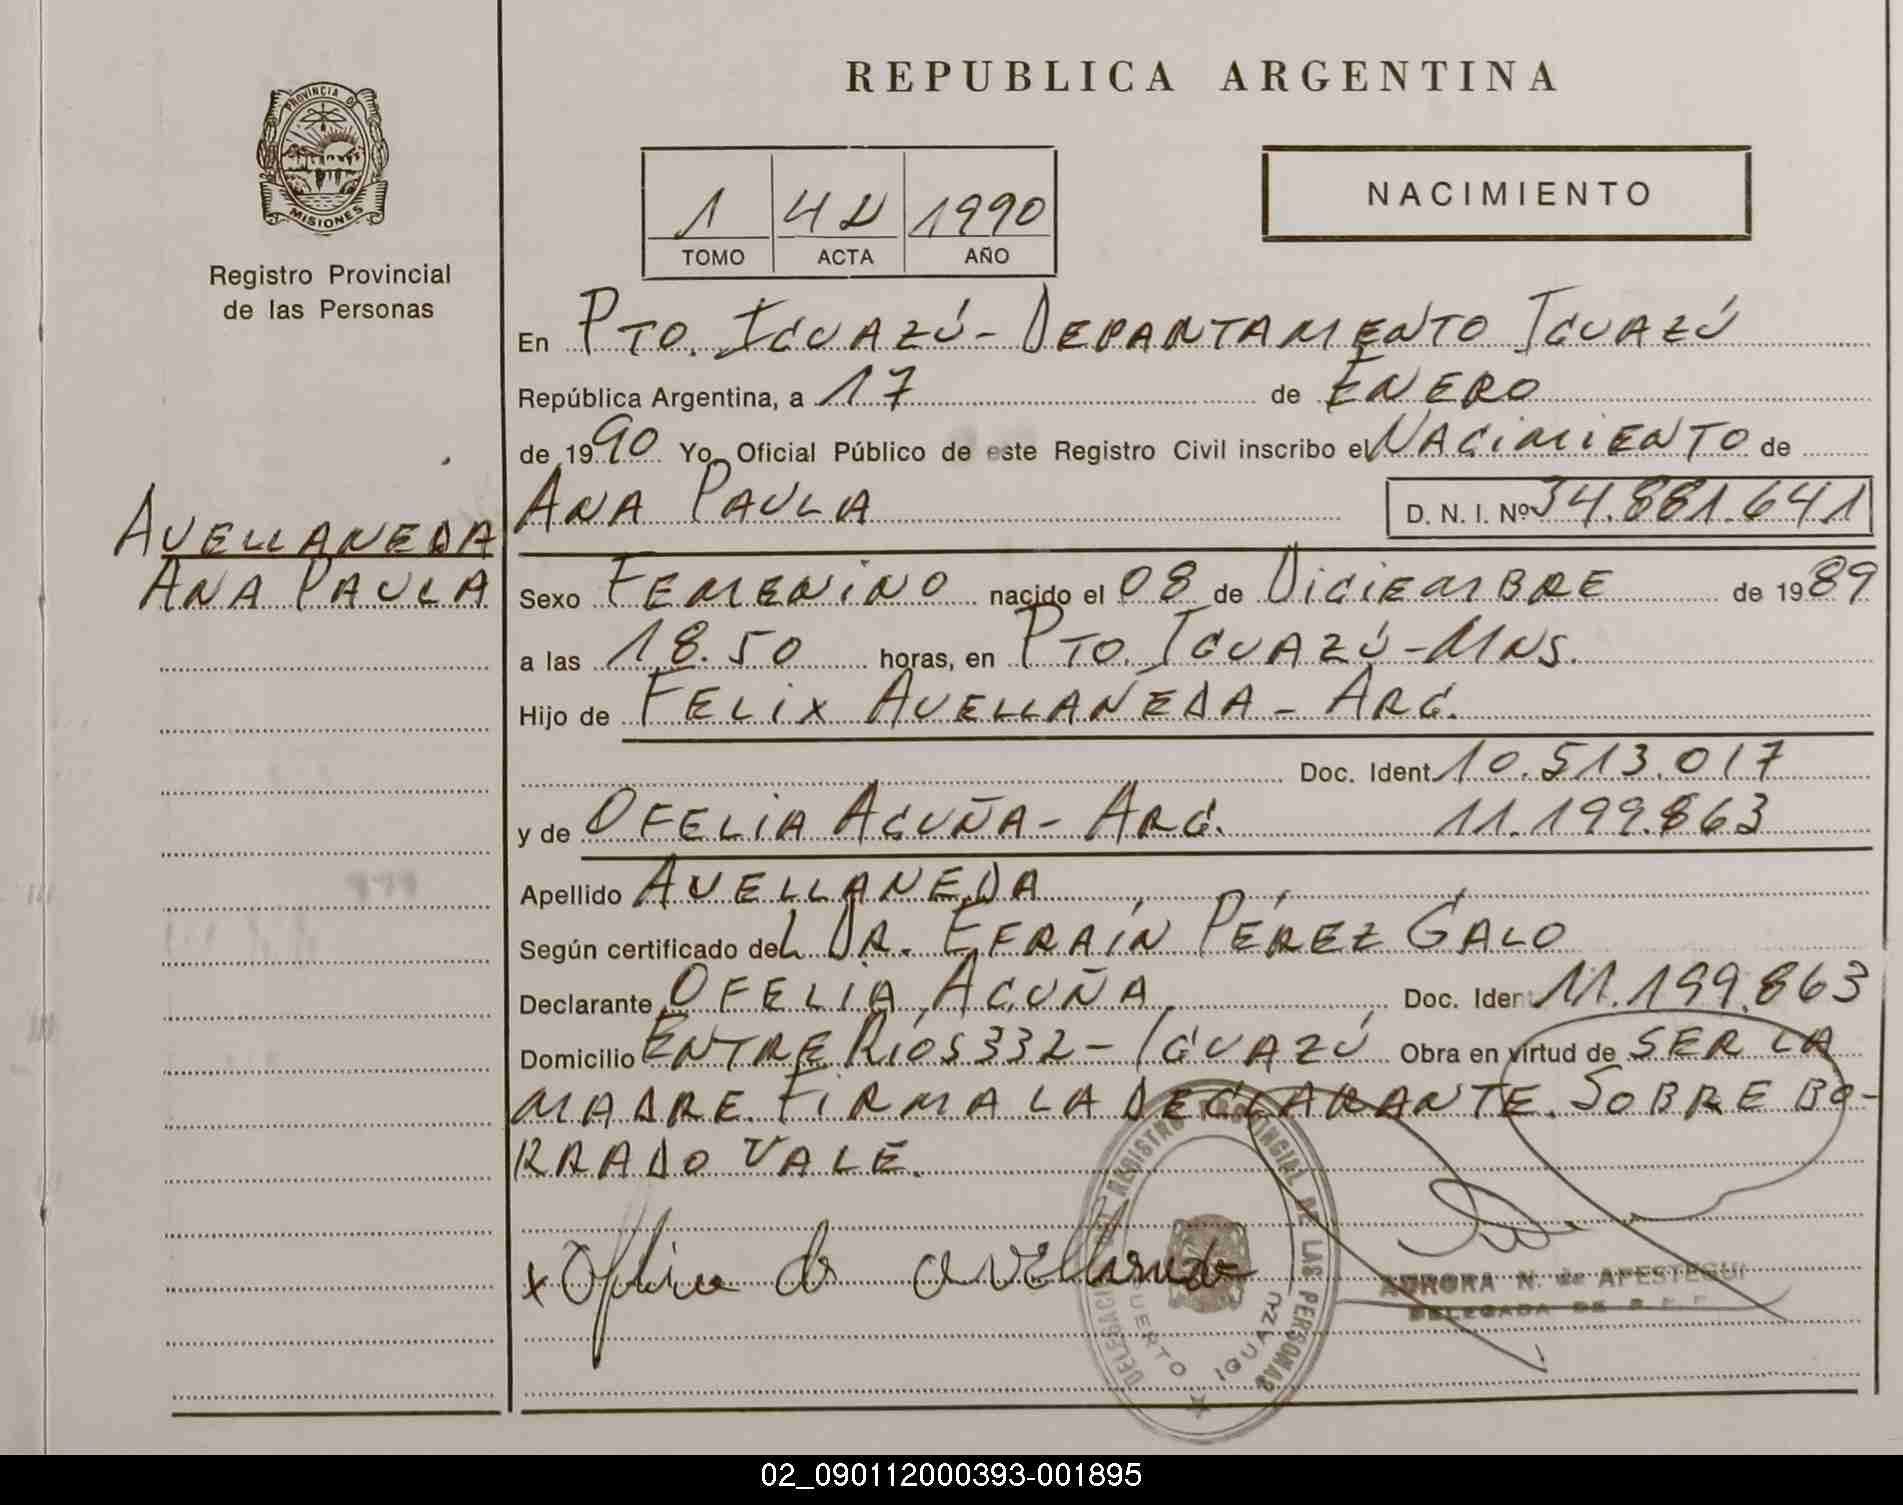 REPUBLICA ARGENTINA
PROVINCIA DE
MISIONES
Registro Provincial
de las Personas
1 1990
TOMO ACTA AÑO
NACIMIENTO
En PTO. IGUAZÚ - DEPARTAMENTO IGUAZÚ
República Argentina, a 17 de ENERO
de 1990 Yo, Oficial Público de este Registro Civil inscribo el NACIMIENTO de
ANA PAULA D. N. I. Nº 34.881.641
AVELLANEDA
ANA PAULA
Sexo FEMENINO nacido el 08 de DICIEMBRE de 1989
a las 18.50 horas, en PTO. IGUAZÚ - MNS.
Hijo de FELIX AVELLANEDA - ARG.
Doc. Ident. 10.513.017
y de OFELIA ACUÑA - ARG. 11.199.863
Apellido AVELLANEDA
Según certificado del DR. EFRAÍN PÉREZ GALO
Declarante OFELIA ACUÑA Doc. Ident 11.199.863
Domicilio ENTRE RÍOS 332 - IGUAZÚ Obra en virtud de SER LA
MADRE. FIRMA LA DECLARANTE. SOBRE BO-
RRADO VALE.
x Ofelia de avellaneda
DELEGACION REGISTRO PROVINCIAL DE LAS PERSONAS
PUERTO IGUAZU
AURORA N. de APESTEGUI
DELEGADA DE
02_090112000393-001895